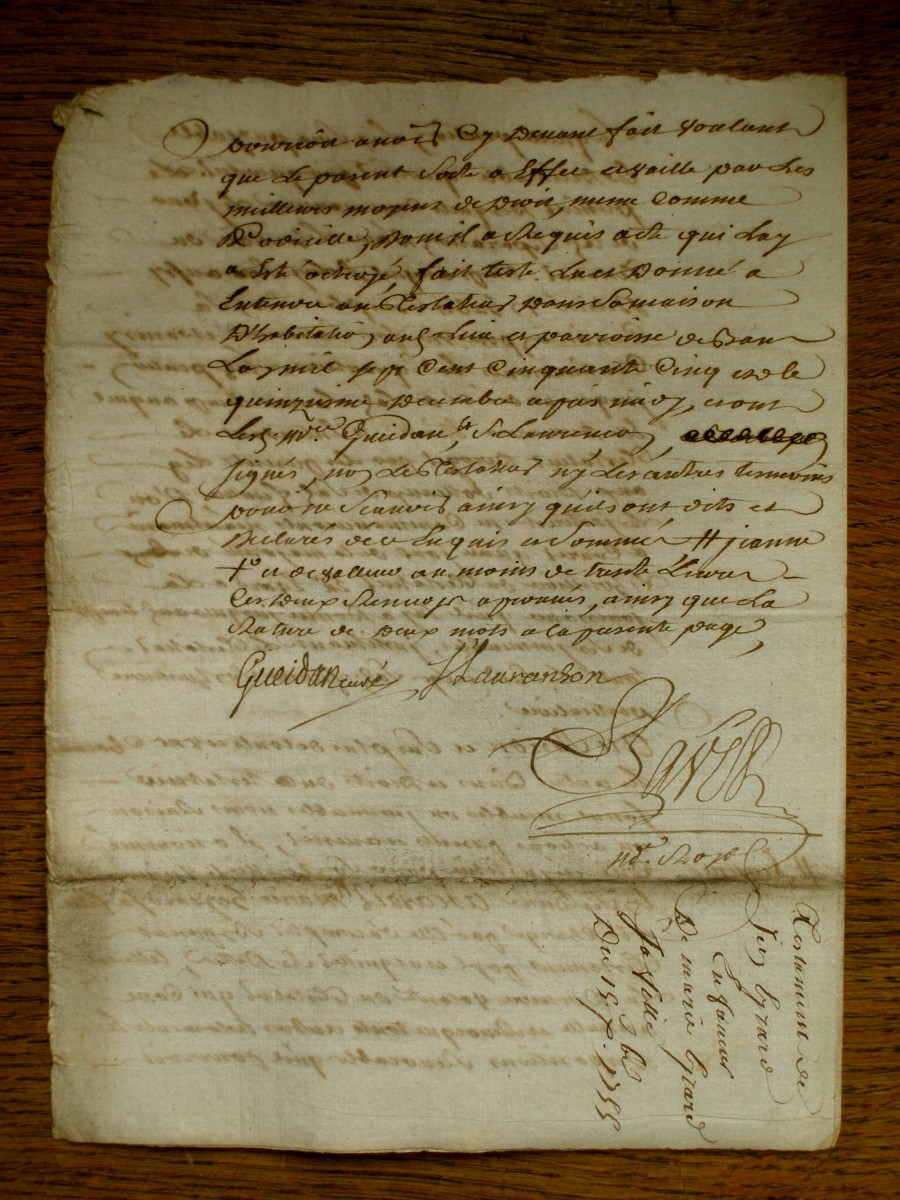 pourroit avoir Cy Devant fait voulant
que Le present Sorte a Effet et vaille par Les
meilleurs moyens de Droit, meme Comme
Codicille, Dont il a Requis acte qui Luy
a Esté octroyé, fait Leu Et Donné a
Entendre au Testateur Dans Sa maison
D'habitation, aud. Lieu et parroisse de
L'an mil sept Cent Cinquante Cinq et le
quinzieme Decembre apres midy, et ont
Les Gueidan S. Laurenson,
signés, non Le Testateur ny Les autres temoins
pour ne Scavoir ainsy qu'ils ont dit et
Declarés de ce Enquis et Sommés # jeanne
+ et de valleur au moins de trente Livres
Les deux Renvoys aprouvés, ainsy que La
Rature de Deux mots a la presente page,
Gueidan curé Lauranson
nre. Royal
Testament de
Eyrard
En faveur
De marie Girard
Sa
Du 15 Xbre. 1755